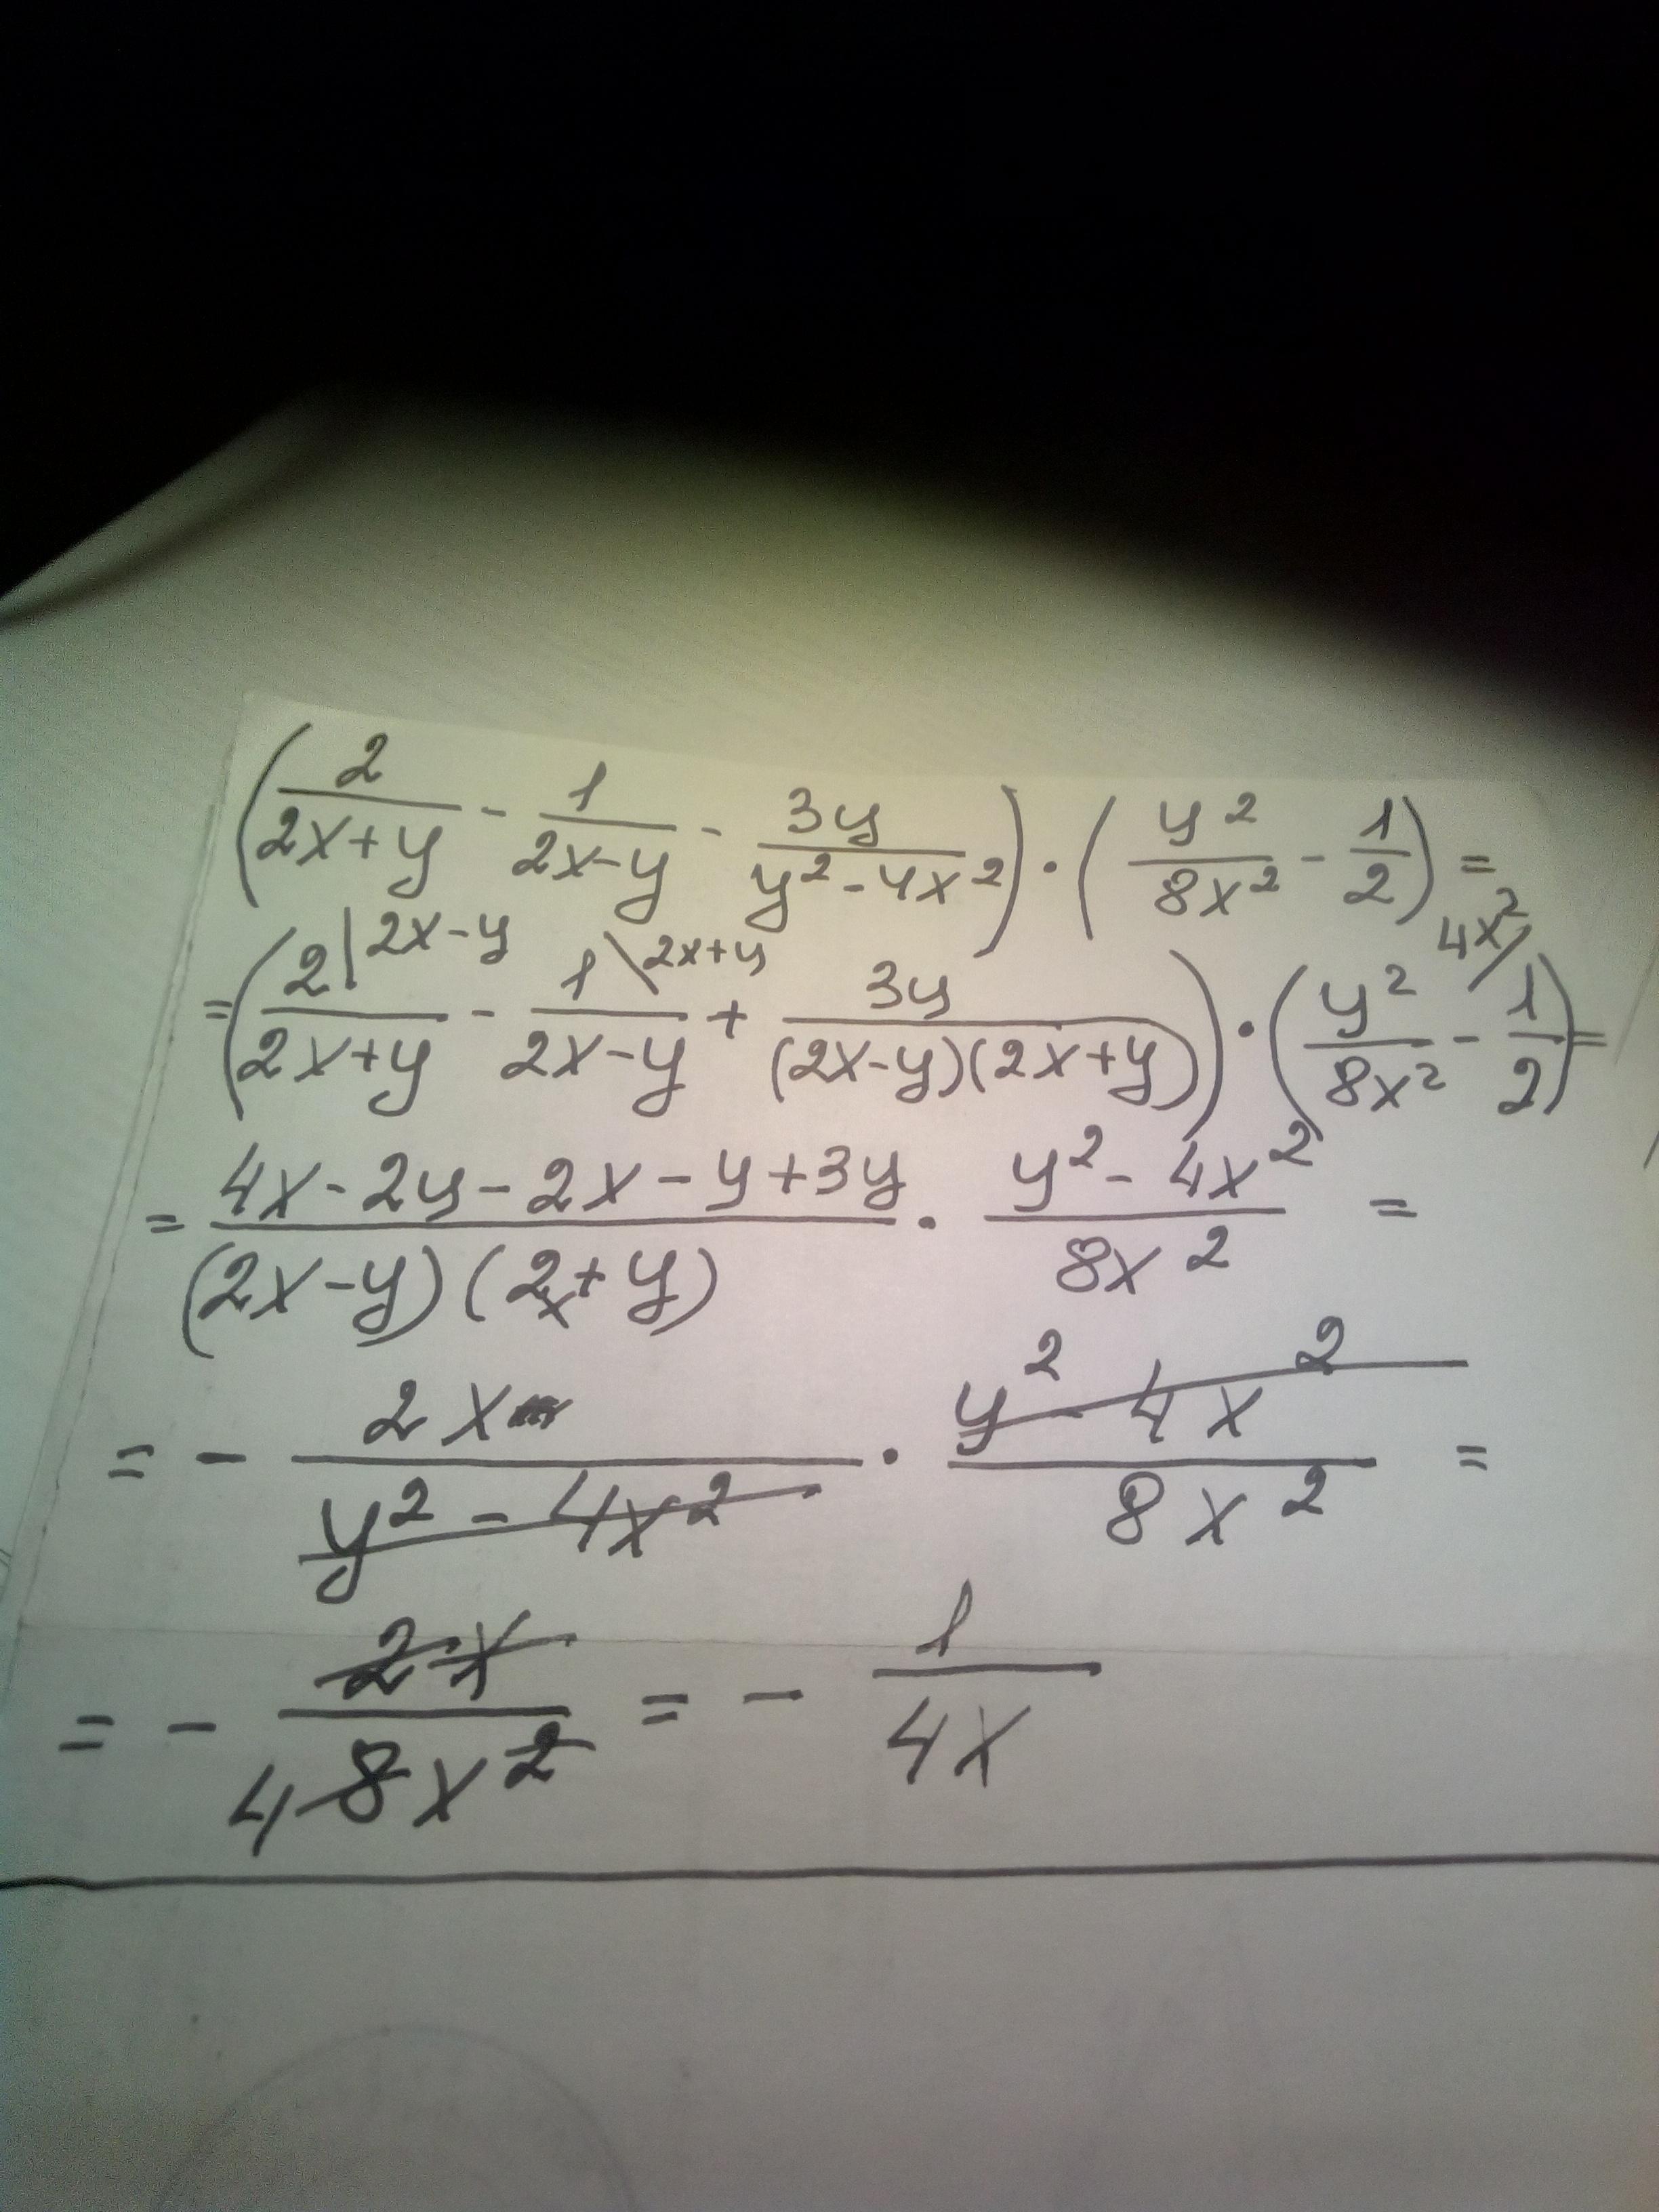 (2/(2x+y) - 1/(2x-y) - 3y/(y²-4x²)) · (y²/8x² - 1/2) =
= (2|2x-y/(2x+y) - 1\2x+y/(2x-y) + 3y/((2x-y)(2x+y))) · (y²/8x² - 4x²/1/2) =
= (4x-2y-2x-y+3y)/((2x-y)(2x+y)) · (y²-4x²)/8x² =
= - 2x/(y²-4x²) · (y²-4x²)/8x² =
= - 2x/4 8x² = - 1/4x